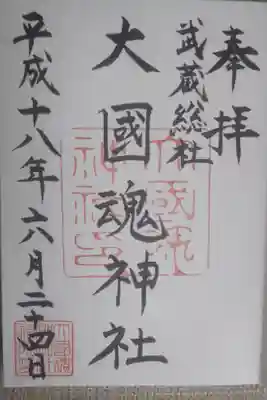 奉拝
武蔵総社
大國魂神社
平成十八年六月二十四日